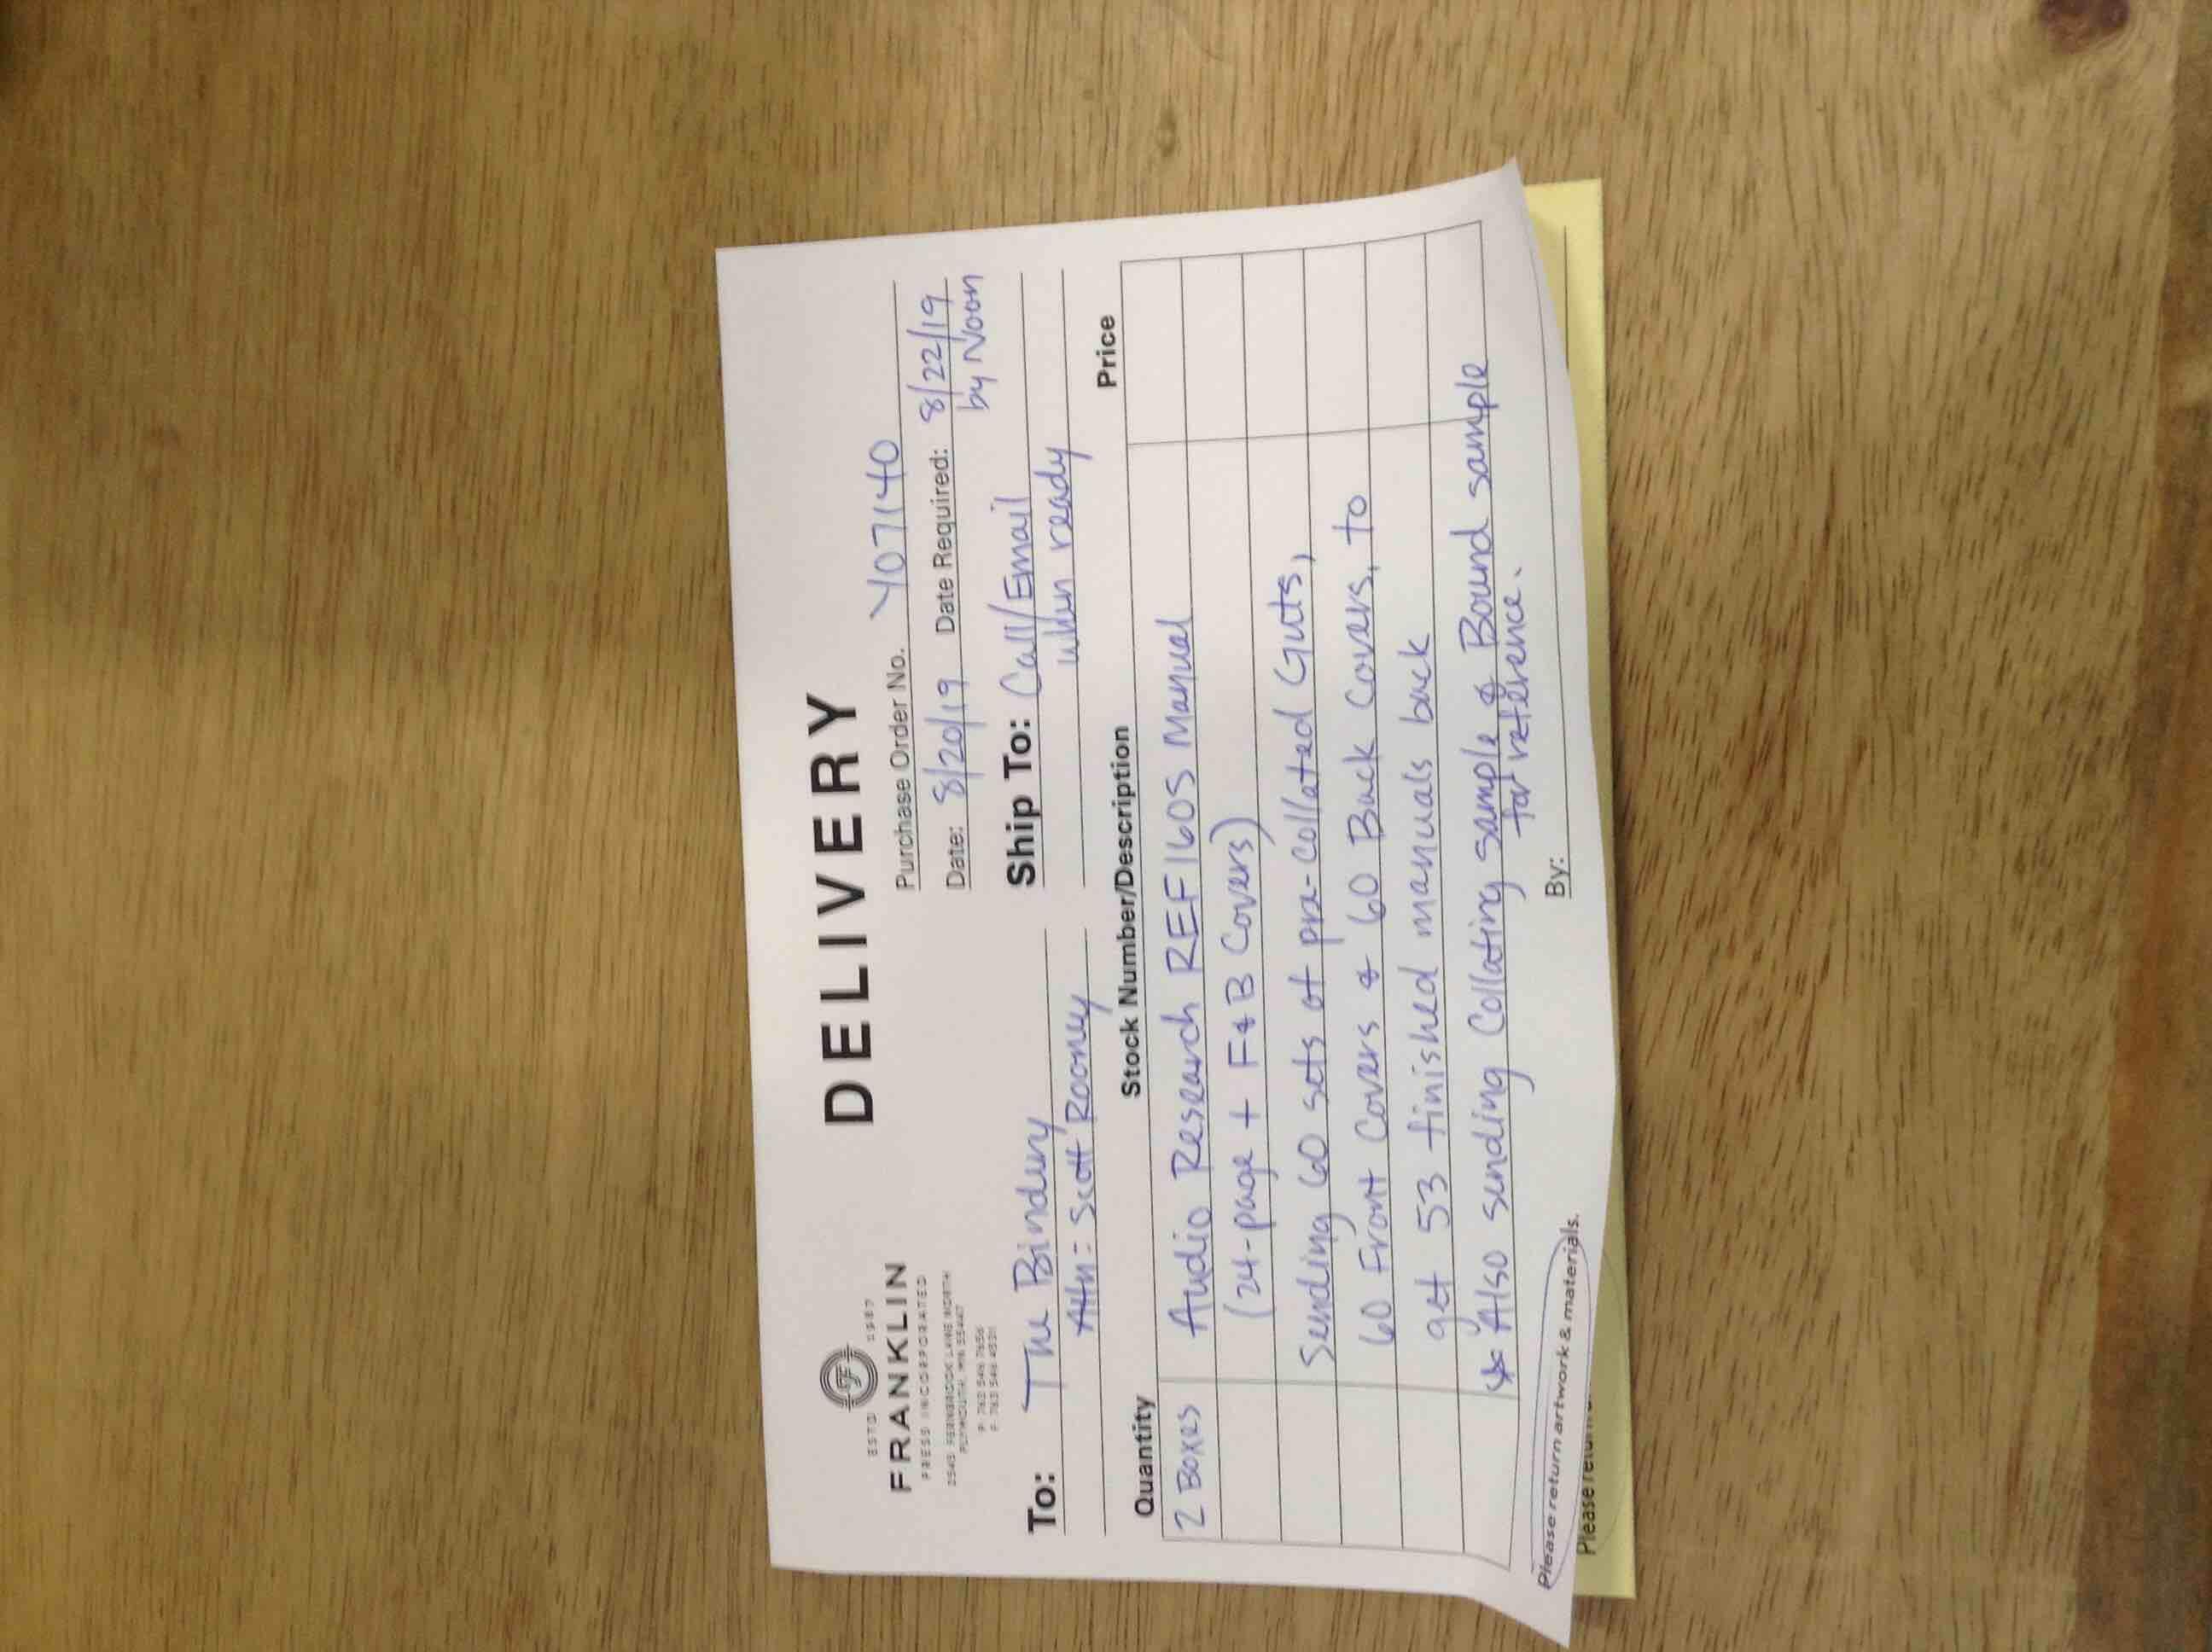 DELIVERY
ESTD 1987
FRANKLIN
PRESS INCORPORATED
Purchase Order No. Y071140
Date: 8/20/19 Date Required: 8/22/19
by Noon
To: The Bindery
Attn: Scott Rooney
Ship To: Call/Email
when ready
Quantity Stock Number/Description Price
2 Boxes Audio Research REF160S Manual
(24-page + F&B Covers)
Sending 60 sets of pre-collated Guts,
60 Front Covers & 60 Back Covers, to
get 53 finished manuals back
* Also sending Collating sample & Bound sample
for reference.
Please return artwork & materials.
By:
Please return